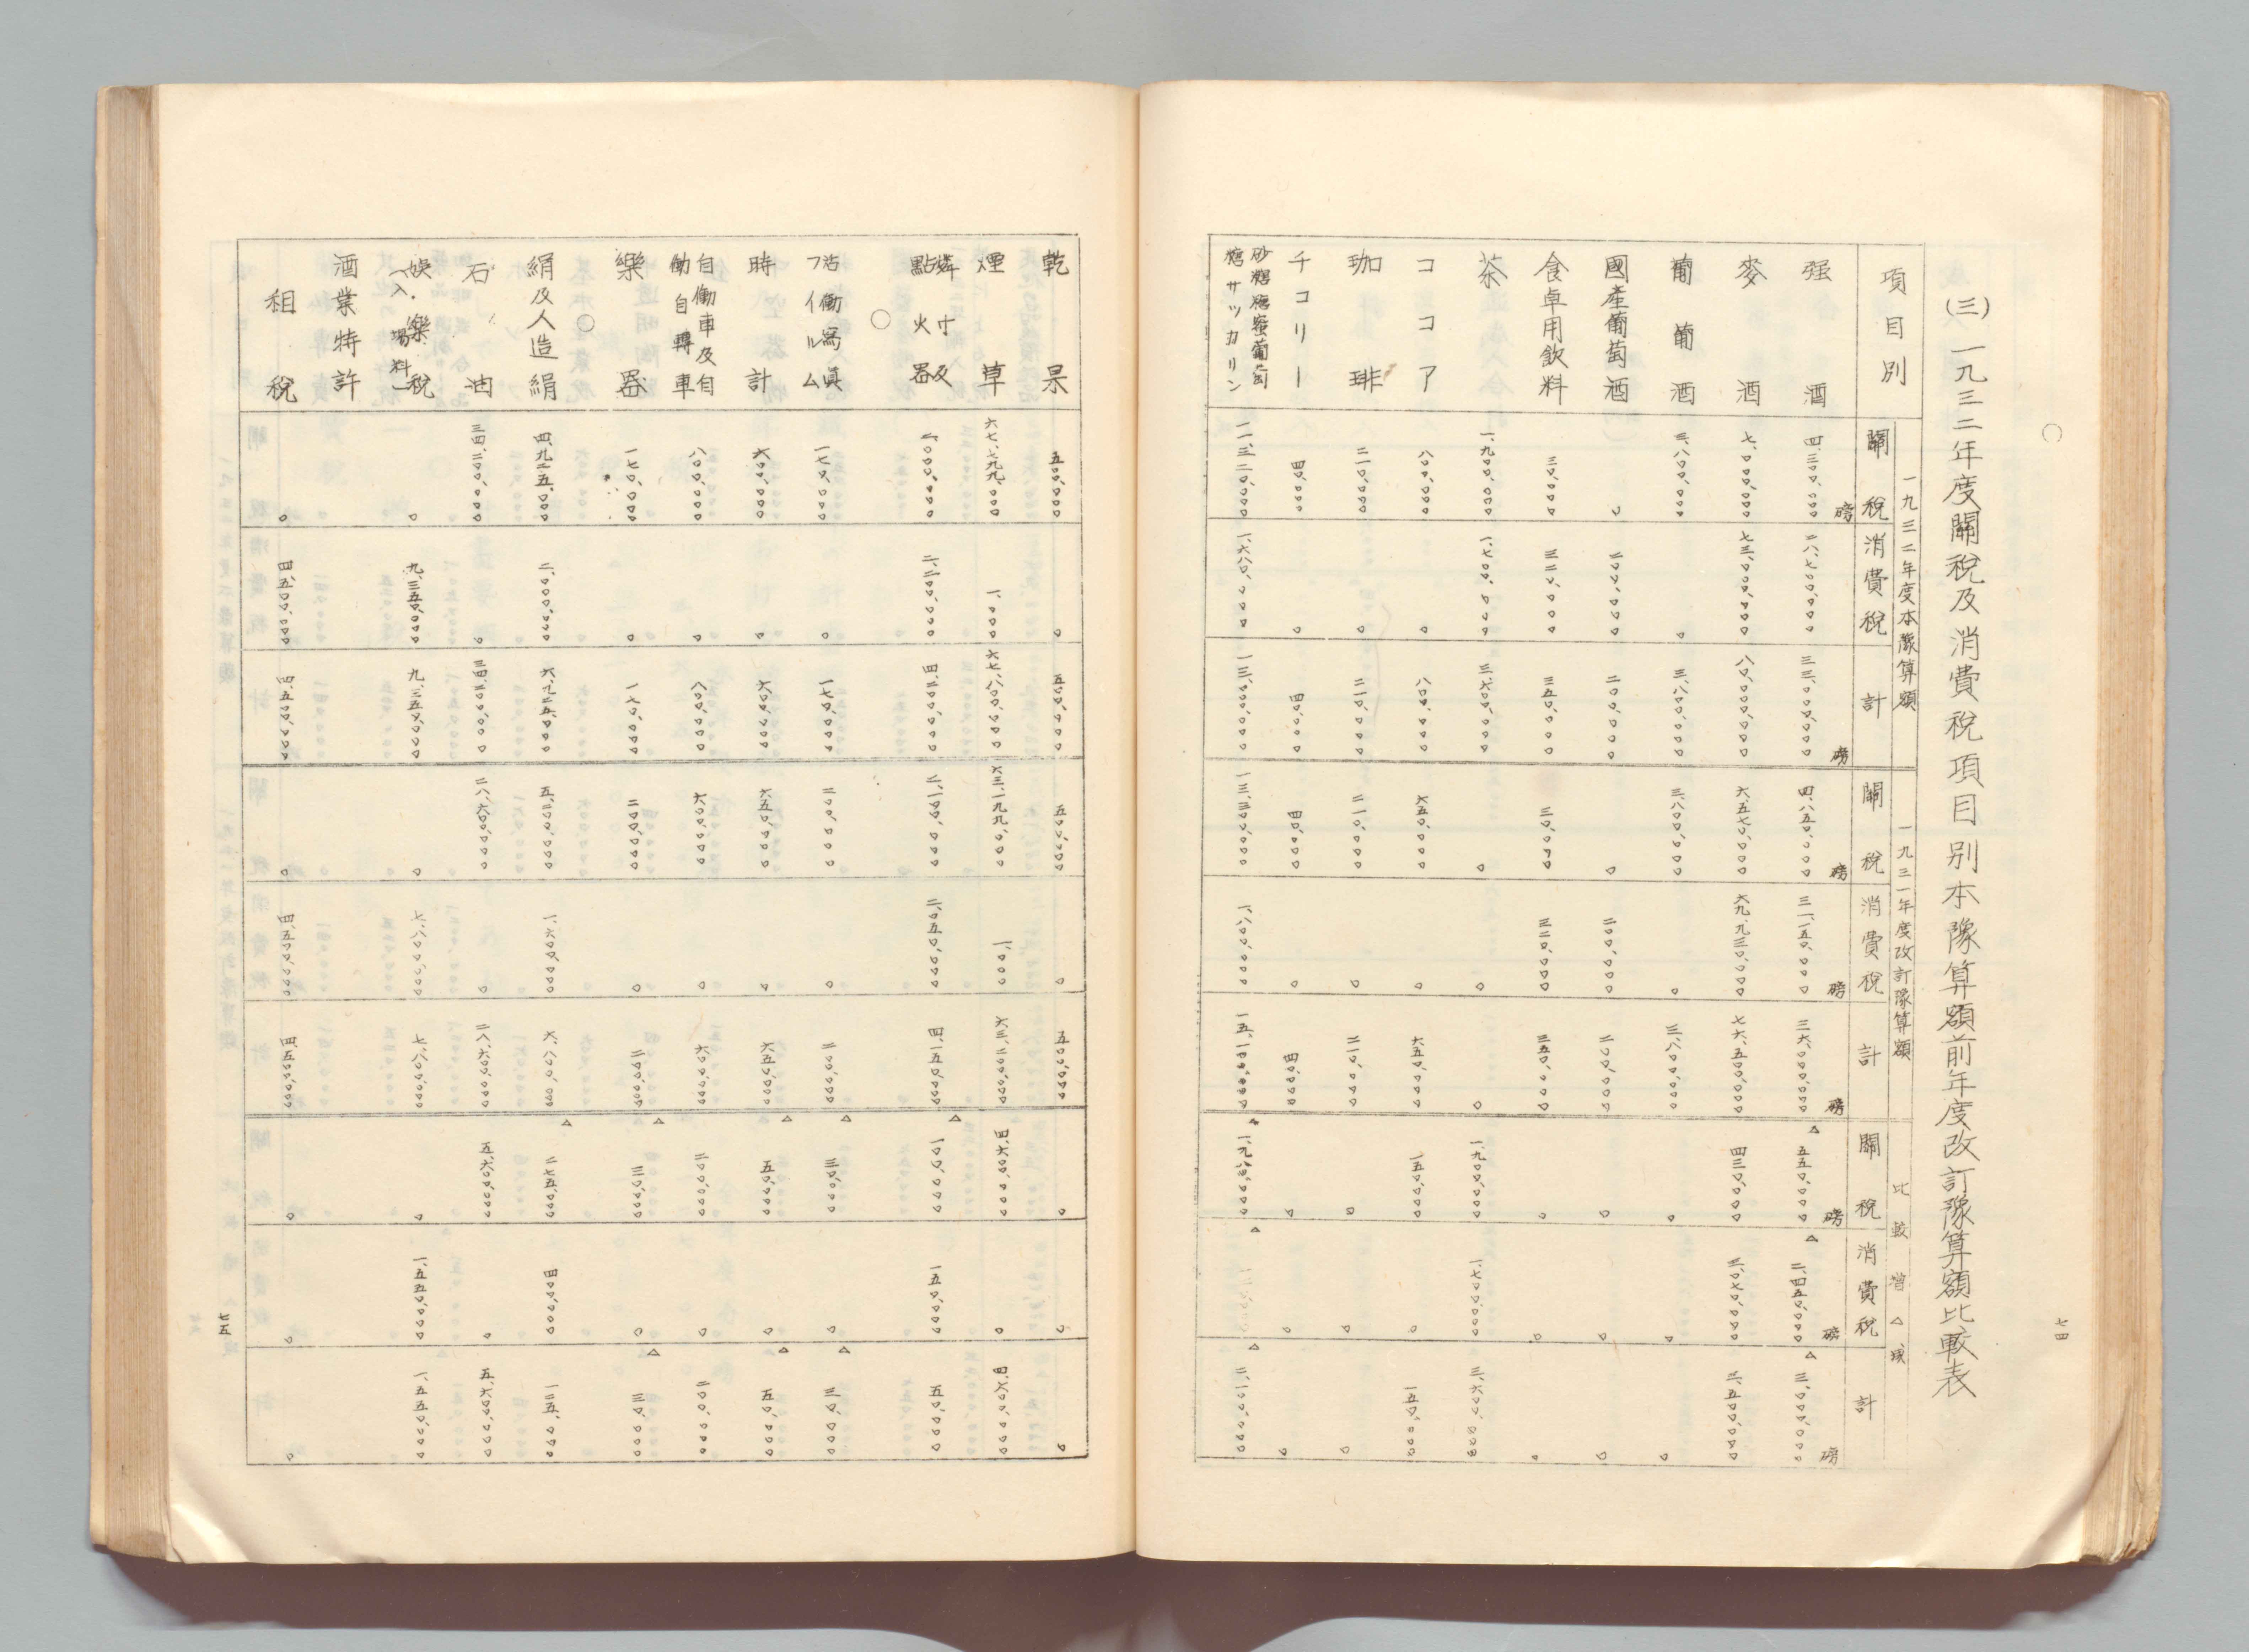 七四
○
(三) 一九三二年度關稅及消費稅項目別本豫算額前年度改訂豫算額比較表
項目別 一九三二年度本豫算額 一九三一年度改訂豫算額 比較增△減
關稅 消費稅 計 關稅 消費稅 計 關稅 消費稅 計
磅 磅 磅 磅 磅 磅 磅 磅
强酒 四、三〇〇、〇〇〇 二八、七〇〇、〇〇〇 三三、〇〇〇、〇〇〇 四、八五〇、〇〇〇 三一、一五〇、〇〇〇 三六、〇〇〇、〇〇〇 △五五〇、〇〇〇 △二、四五〇、〇〇〇 △三、〇〇〇、〇〇〇
麥酒 七、〇〇〇、〇〇〇 七三、〇〇〇、〇〇〇 八〇、〇〇〇、〇〇〇 六、五七〇、〇〇〇 六九、九三〇、〇〇〇 七六、五〇〇、〇〇〇 四三〇、〇〇〇 三、〇七〇、〇〇〇 三、五〇〇、〇〇〇
葡葡酒 三、八〇〇、〇〇〇 〇 三、八〇〇、〇〇〇 三、八〇〇、〇〇〇 〇 三、八〇〇、〇〇〇 〇 〇 〇
國產葡萄酒 〇 二〇〇、〇〇〇 二〇〇、〇〇〇 〇 二〇〇、〇〇〇 二〇〇、〇〇〇 〇 〇 〇
食卓用飲料 三〇、〇〇〇 三二〇、〇〇〇 三五〇、〇〇〇 三〇、〇〇〇 三二〇、〇〇〇 三五〇、〇〇〇 〇 〇 〇
茶 一、九〇〇、〇〇〇 一、七〇〇、〇〇〇 三、六〇〇、〇〇〇 〇 〇 〇 一、九〇〇、〇〇〇 一、七〇〇、〇〇〇 三、六〇〇、〇〇〇
ココア 八〇〇、〇〇〇 〇 八〇〇、〇〇〇 六五〇、〇〇〇 〇 六五〇、〇〇〇 一五〇、〇〇〇 〇 一五〇、〇〇〇
珈琲 二一〇、〇〇〇 〇 二一〇、〇〇〇 二一〇、〇〇〇 〇 二一〇、〇〇〇 〇 〇 〇
チコリー 四〇、〇〇〇 〇 四〇、〇〇〇 四〇、〇〇〇 〇 四〇、〇〇〇 〇 〇 〇
砂糖糖蜜葡萄糖サツカリン 一一、三二〇、〇〇〇 一、六八〇、〇〇〇 一三、〇〇〇、〇〇〇 一三、三〇〇、〇〇〇 一、八〇〇、〇〇〇 一五、一〇〇、〇〇〇 △一、九八〇、〇〇〇 △ △二、一〇〇、〇〇〇
乾果 五〇〇、〇〇〇 〇 五〇〇、〇〇〇 五〇〇、〇〇〇 〇 五〇〇、〇〇〇 〇 〇 〇
煙草 六七、七九九、〇〇〇 一、〇〇〇 六七、八〇〇、〇〇〇 六三、一九九、〇〇〇 一、〇〇〇 六三、二〇〇、〇〇〇 四、六〇〇、〇〇〇 〇 四、六〇〇、〇〇〇
燐寸及點火器 二、〇〇〇、〇〇〇 二、二〇〇、〇〇〇 四、二〇〇、〇〇〇 二、一〇〇、〇〇〇 二、〇五〇、〇〇〇 四、一五〇、〇〇〇 △一〇〇、〇〇〇 一五〇、〇〇〇 五〇、〇〇〇
○
活働寫眞フイルム 一七〇、〇〇〇 〇 一七〇、〇〇〇 二〇〇、〇〇〇 〇 二〇〇、〇〇〇 △三〇、〇〇〇 〇 △三〇、〇〇〇
時計 六〇〇、〇〇〇 〇 六〇〇、〇〇〇 六五〇、〇〇〇 〇 六五〇、〇〇〇 △五〇、〇〇〇 〇 △五〇、〇〇〇
自働車及自働自轉車 八〇〇、〇〇〇 〇 八〇〇、〇〇〇 六〇〇、〇〇〇 〇 六〇〇、〇〇〇 二〇〇、〇〇〇 〇 二〇〇、〇〇〇
樂器 一七〇、〇〇〇 〇 一七〇、〇〇〇 二〇〇、〇〇〇 〇 二〇〇、〇〇〇 △三〇、〇〇〇 〇 △三〇、〇〇〇
○
絹及人造絹 四、九二五、〇〇〇 二、〇〇〇、〇〇〇 六、九二五、〇〇〇 五、二〇〇、〇〇〇 一、六〇〇、〇〇〇 六、八〇〇、〇〇〇 △二七五、〇〇〇 四〇〇、〇〇〇 一二五、〇〇〇
石油 三四、二〇〇、〇〇〇 〇 三四、二〇〇、〇〇〇 二八、六〇〇、〇〇〇 〇 二八、六〇〇、〇〇〇 五、六〇〇、〇〇〇 〇 五、六〇〇、〇〇〇
娛樂稅(入場料) 〇 九、三五〇、〇〇〇 九、三五〇、〇〇〇 〇 七、八〇〇、〇〇〇 七、八〇〇、〇〇〇 〇 一、五五〇、〇〇〇 一、五五〇、〇〇〇
酒業特許
租稅 〇 四、五〇〇、〇〇〇 四、五〇〇、〇〇〇 〇 四、五〇〇、〇〇〇 四、五〇〇、〇〇〇 〇 〇 〇
七五